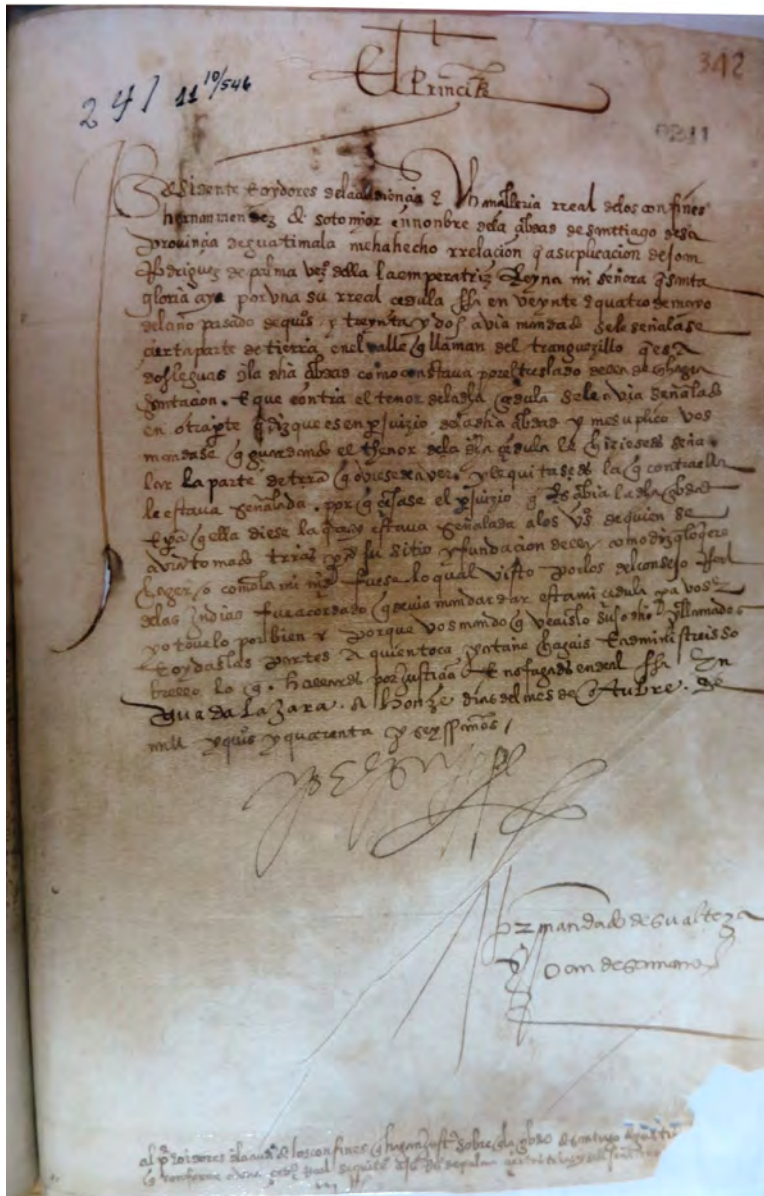 El Princípe
241 11 10/546
342
0211
Presidente e oydores dela abdiençia e Chançilleria rreal delos confines
hernan mendez de sotomayor en nonbre dela çibdad de santtiago desa
provinçia de guatimala me ha hecho rrelaçion q a suplicaçion de joan
Rodriguez de palma vezº della la enperatriz Reyna mi señora q santa
gloria aya por una su rreal çedula ffha en veynte e quatro de
del año pasado de quiºs y treynta y dos avia mandado se le señalase
çierta parte de tierra en el valle q llaman del tianguezillo q es a
dos leguas dla dha çibdad como constava por el treslado della de q hazia
presentaçion. E que contra el tenor dela dha çedula se le avia señalado
en otra parte q diz que es en perjuizio dela dha çibdad y me suplico vos
mandase q guardando el thenor dela dha çedula le hiziesedes seña
lar la parte de trra q oviese de aver. y le quitasedes la q contra ella
le estava señalada. por q çesase el perjuizio q resçibia la dha çibdad
e para q ella diese la que ansi estava señalada alos vºs de quien se
avian tomado trras para su sitio y fundaçion della como diz q lo quiere
hazer / o como la mi mrd fuese lo qual visto por los del consejo Real
delas Indias fue acordado q devia mandar dar esta mi çedula para vos e
yo tovelo por bien y porque vos mando q veais lo suso dho y llamadas
e oydas las partes a quien toca y atañe hagais e administreis so
brello lo q. hallardes por justiçia E no fagades endeal ffha En
guadalazara. a honze dias del mes de otubre. de
mill y quiºs y quarenta y seys años /
yo El prinçipe
por mandado de su alteza
Joan de Samano
al p e oidores dla audª de los confines q hagan justª sobre q la çibdad de santiago
q conforme a una çedula real